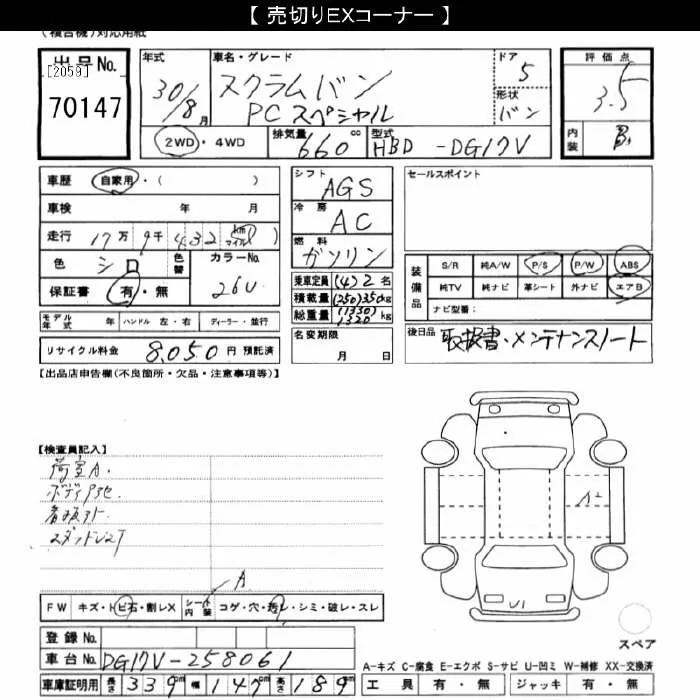 【 売切りEXコーナー 】
出品No.
[2059]
70147
年式
30/8月
車名・グレード
スクラムバン
PCスペシャル
ドア
5
形状
バン
評価点
3.5
内装
B
2WD・4WD
排気量 660 cc
型式 HBD-DG17V
車歴 自家用・( )
車検 年 月
走行 17万9千432 km マイル )
色 シロ 色替
カラーNo. 26U
保証書 有・無
モデル年式 年 ハンドル 左・右 ディーラー・並行
リサイクル料金 8,050 円 預託済
シフト AGS
冷房 AC
燃料 ガソリン
乗車定員 (4) 2 名
積載量 (250) 350 kg
総重量 (1330) 1320 kg
名変期限
月 日
セールスポイント
装備品
S/R 純A/W P/S P/W ABS
純TV 純ナビ 革シート 外ナビ エアB
ナビ型番:
後日品 取扱書・メンテナンスノート
【出品店申告欄(不良箇所・欠品・注意事項等)】
【検査員記入】
荷室A.
A2
U1
A
FW キズ・トビ石・割レX シート内装 コゲ・穴・汚レ・シミ・破レ・スレ
登録No.
車台No. DG17V-258061
車庫証明用 長さ 339cm 幅 147cm 高さ 189cm
スペア
A-キズ C-腐食 E-エクボ S-サビ U-凹ミ W-補修 XX-交換済
工具 有・無 ジャッキ 有・無